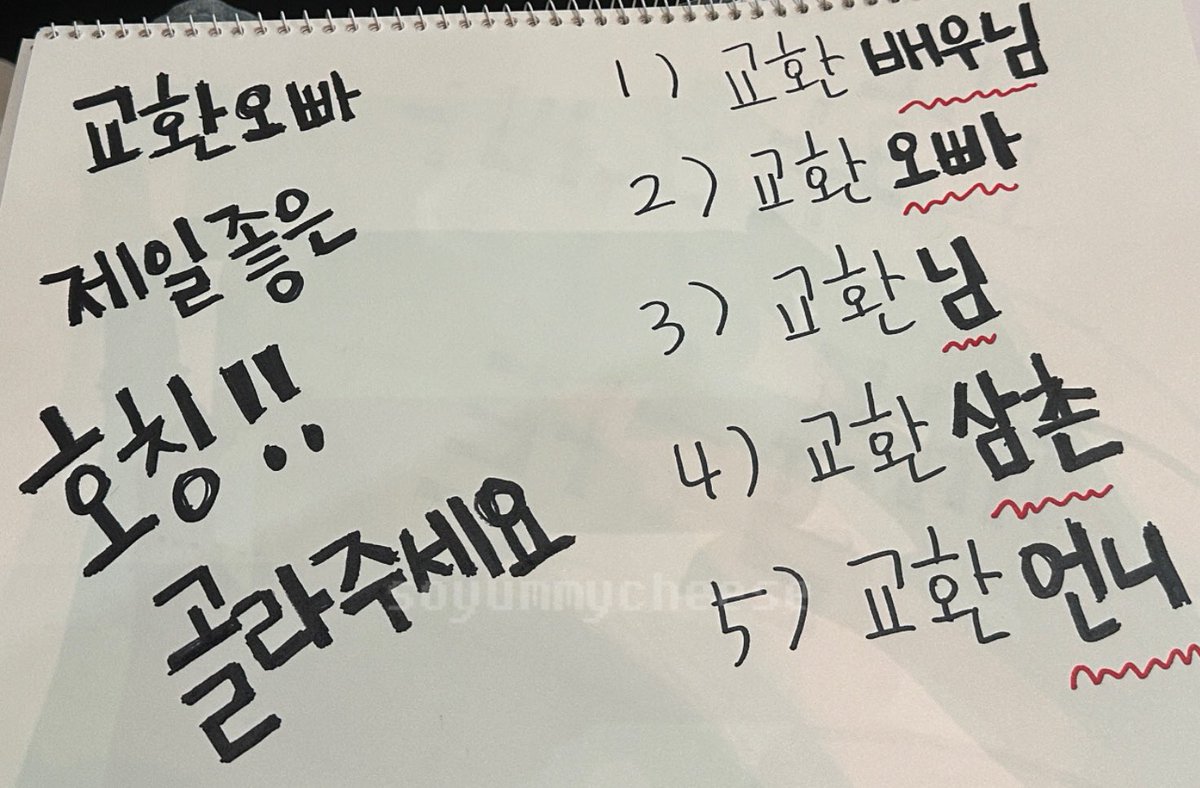 교환오빠
제일좋은
호칭!!
골라주세요
1) 교환 배우님
2) 교환 오빠
3) 교환 님
4) 교환 삼촌
5) 교환 언니
soyummycheese